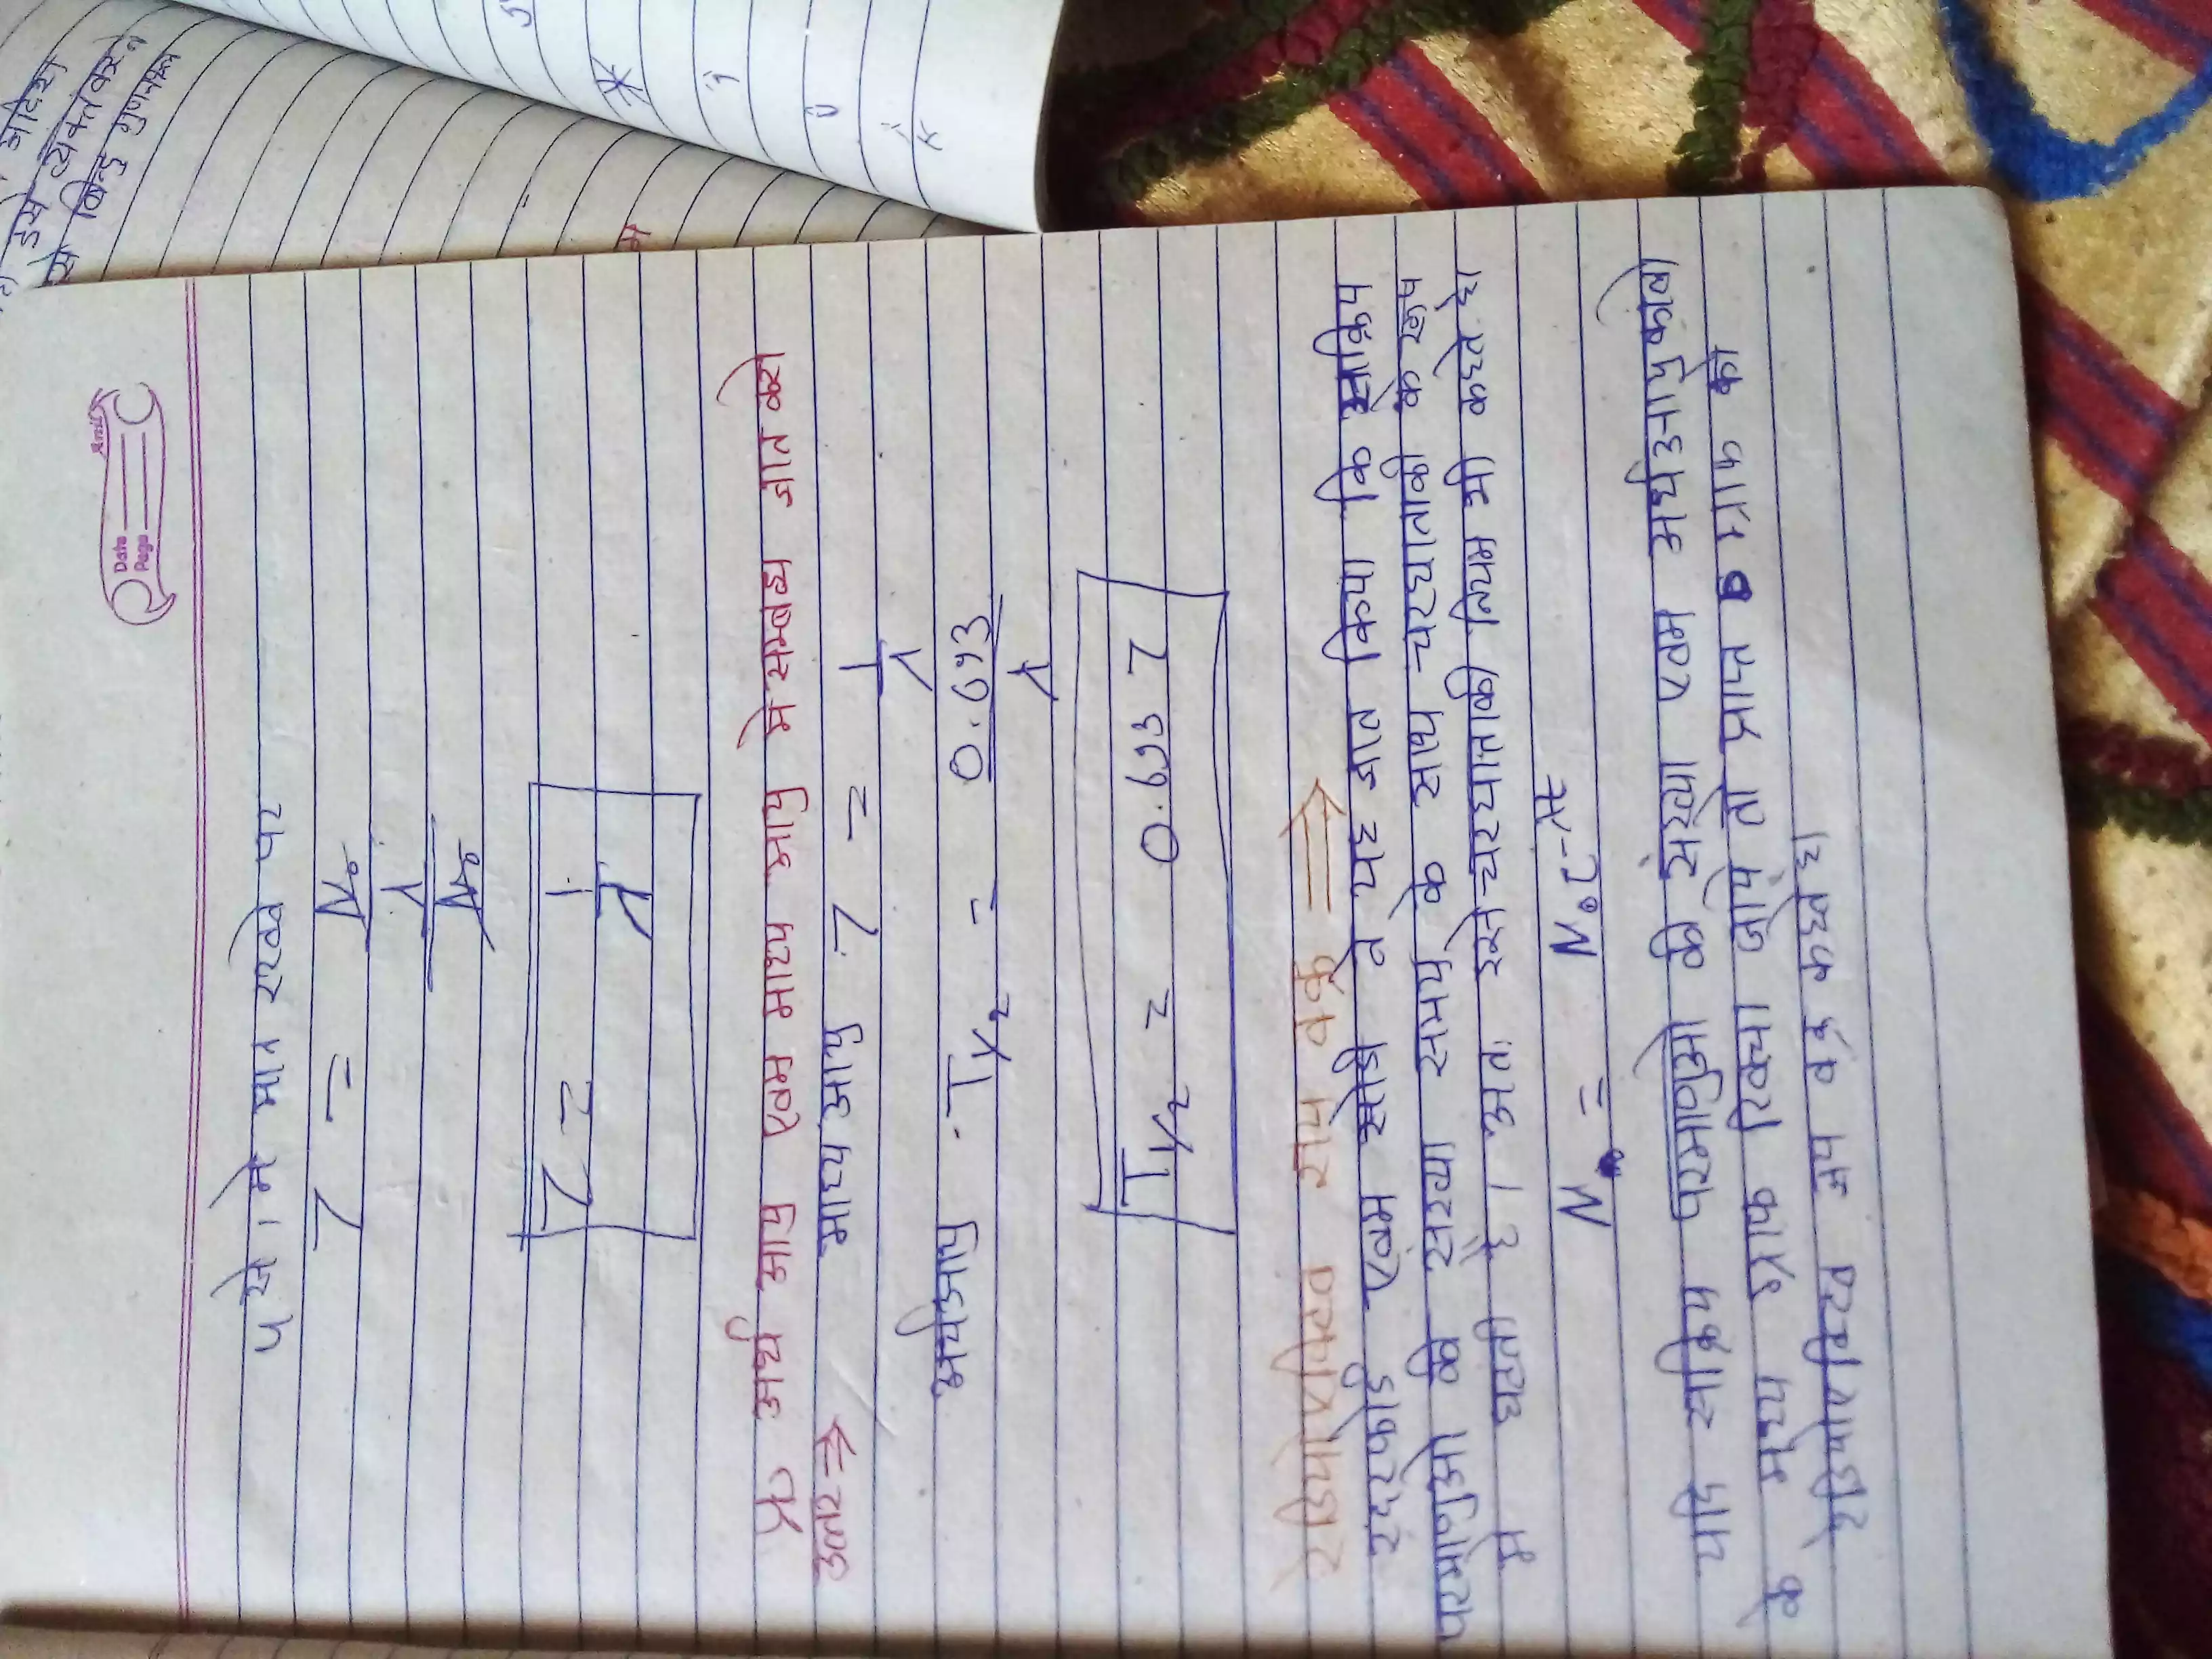 Date
Page
५ से । मे मान रखने पर
τ = N₀
λ
N₀
τ = 1
λ
प्र० अर्ध आयु एवम माध्य आयु मे सम्बन्ध ज्ञात करो
उत्तर ⇒ माध्य आयु τ = 1
λ
अर्धआयु . T½ = 0.693
λ
T½ = 0.693 τ
रेडियोएक्टिव क्षय वक्र ⇒
रदरफोर्ड एवम सोडी ने यह ज्ञात किया कि सक्रिय
परमाणुओ की संख्या समय के साथ चरघातांकी के रूप
मे घटती है । अतः इसे चरघातांकी नियम भी कहते है।
N = N₀ e⁻λt
यदि सक्रिय परमाणुओ की संख्या एवम अर्धआयु कालो
के मध्य ग्राफ खिंचा जाये तो प्राप्त ग्राफ को
रेडियोएक्टिव क्षय वक्र कहते है।
इसे व्यक्त करते
बिन्दु गुणनफल